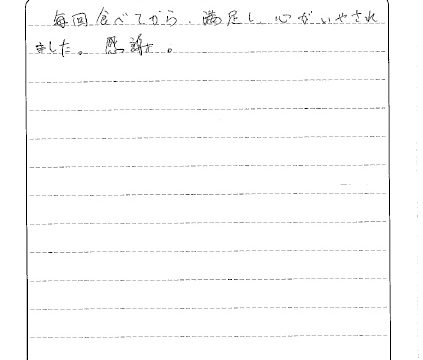 毎回食べてから、満足し、心がいやされ
ました。感謝。